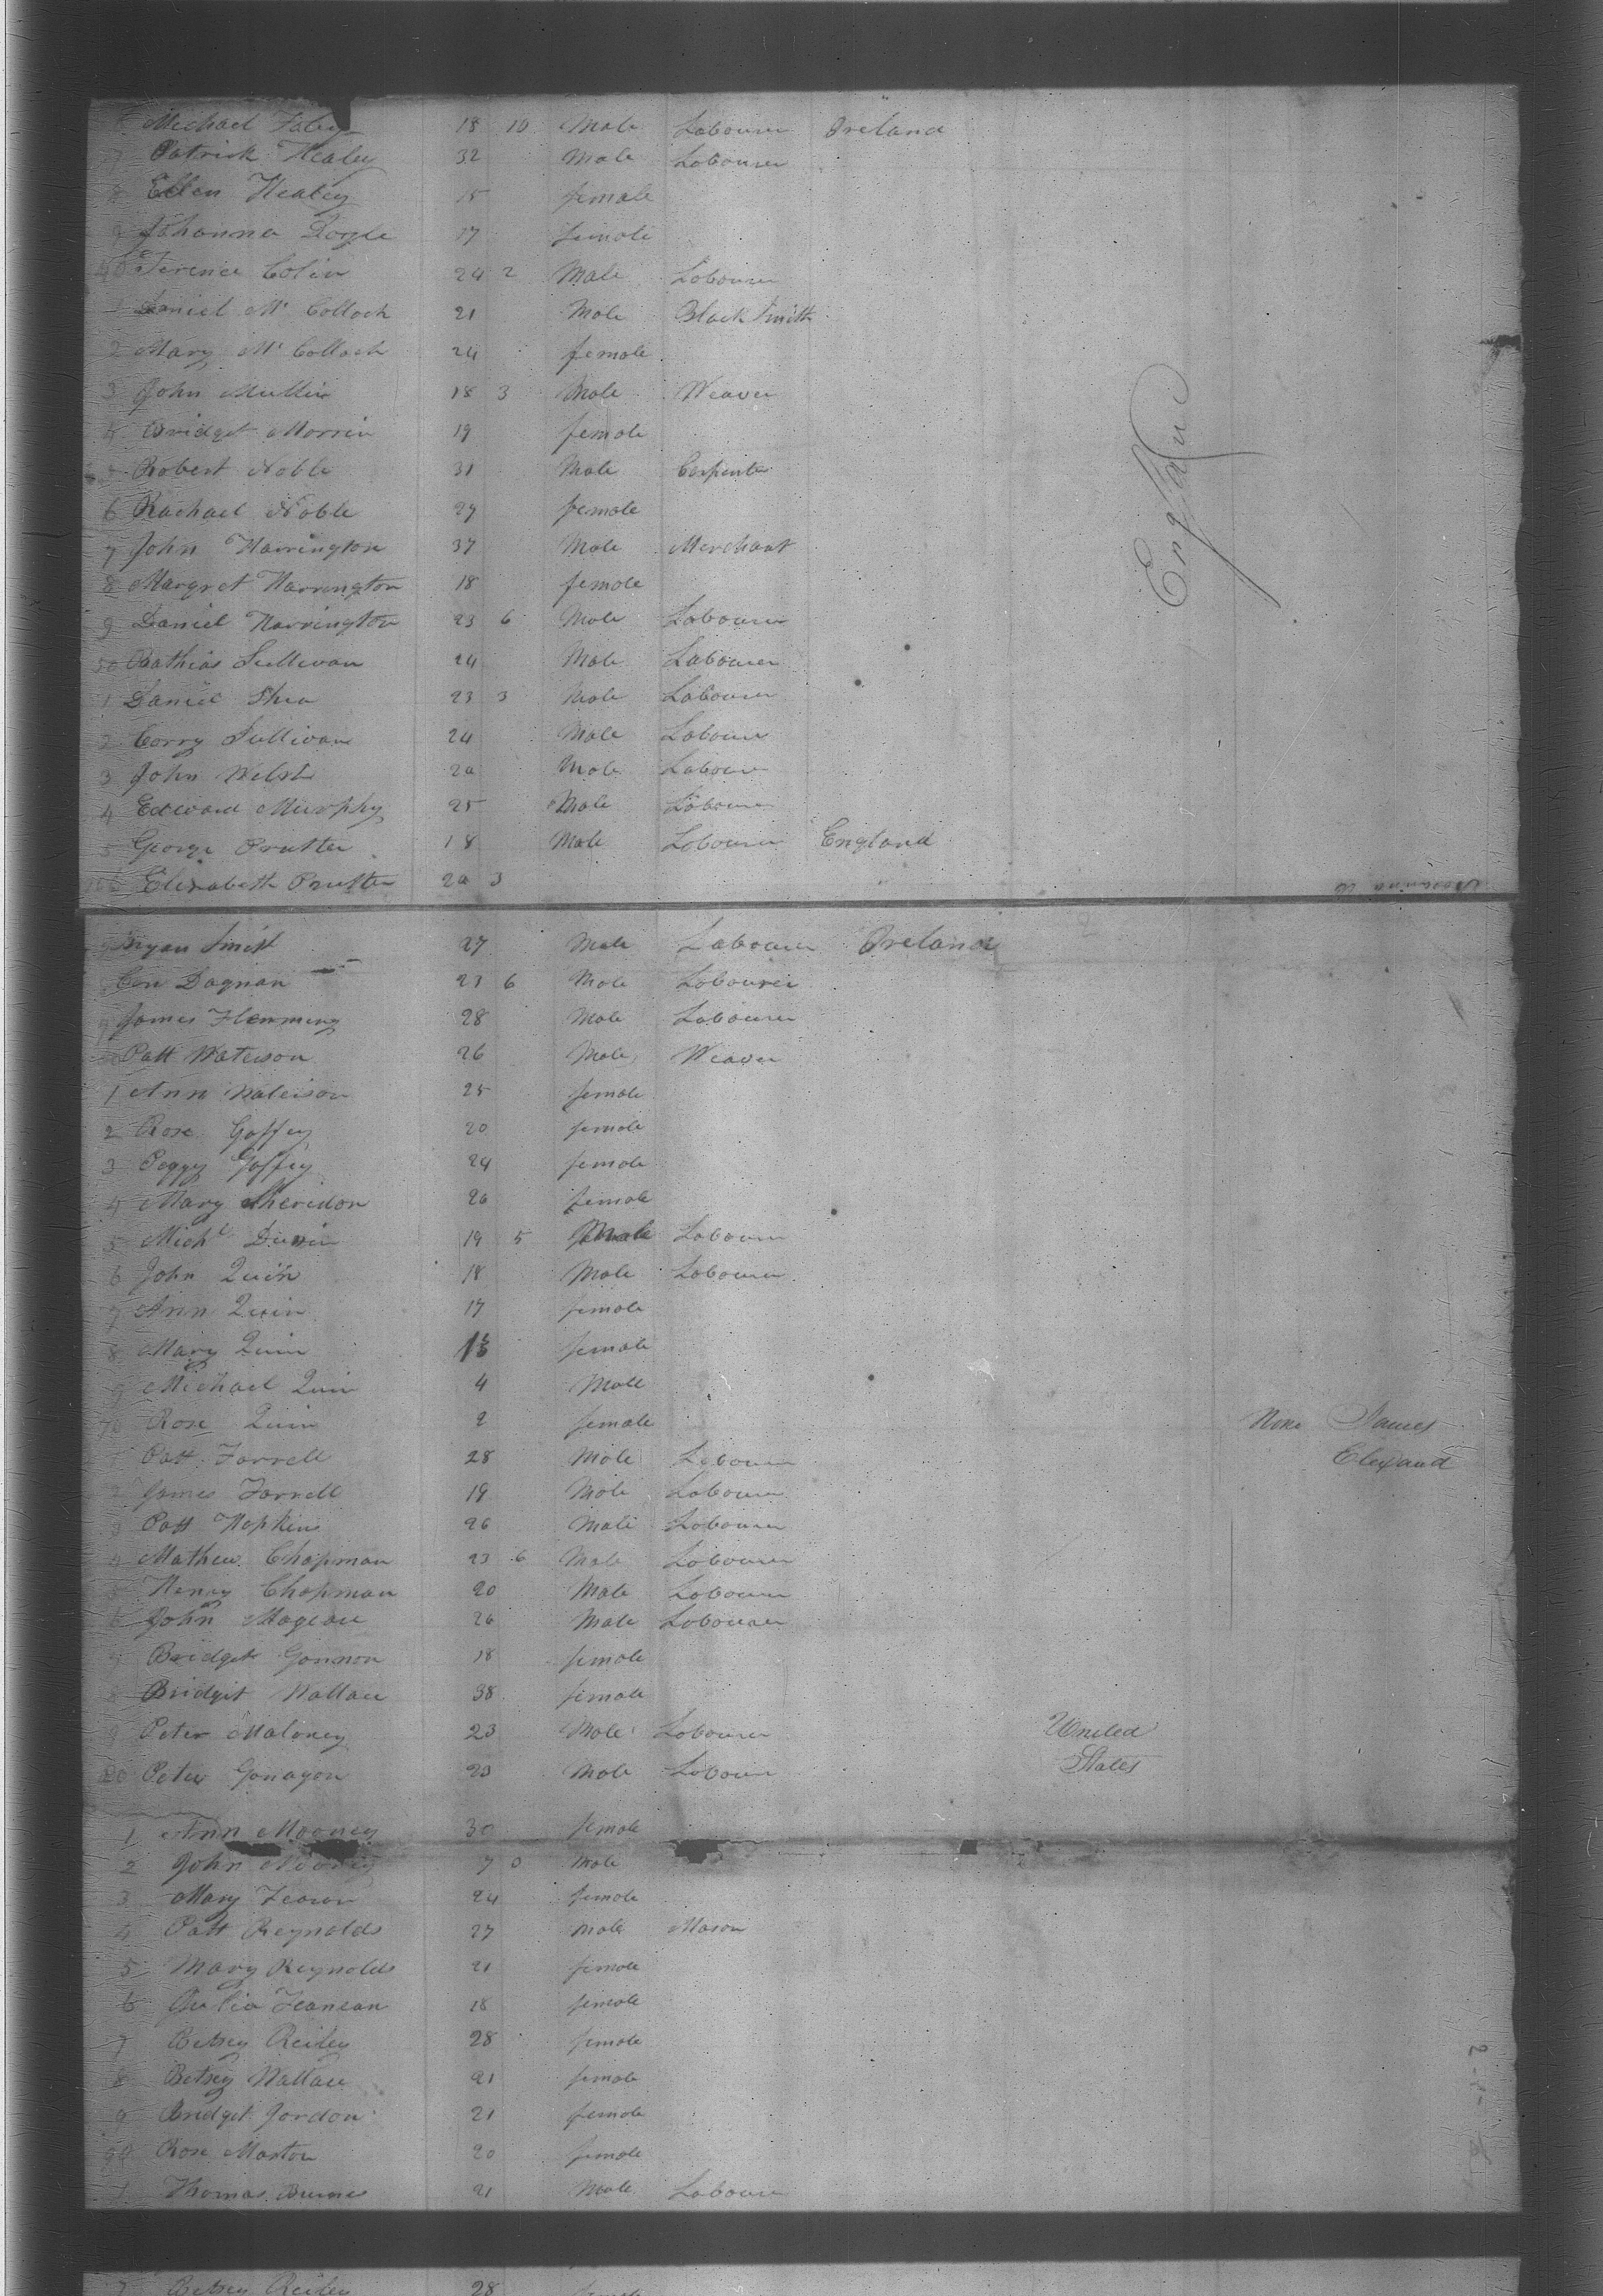 Michael Foley 18 10 Male Labourer Ireland
7 Patrick Healey 32 Male Labourer
8 Ellen Healey 15 female
9 Johanna Doyle 17 female
40 Terence Colin 24 2 Male Labourer
1 Daniel Mc Colloch 21 Male Black Smith
2 Mary Mc Colloch 24 female
3 John Mullin 18 3 Male Weaver
4 Bridget Morrin 19 female
5 Robert Noble 31 Male Carpenter
6 Rachael Noble 27 female
7 John Harrington 37 Male Merchant
8 Margret Harrington 18 female
9 Daniel Harrington 23 6 Male Labourer
50 Sullivan 24 Male Labourer
1 Daniel Shea 23 3 Male Labourer
2 Corry Sullivan 24 Male Labourer
3 John Welsh 20 Male Labourer
4 Edward Murphy 25 Male Labourer
5 George Prutter 18 Male Labourer England
Elizabeth Prutter 20 3
England
Bryan Smith 27 Male Labourer Ireland
Con Dagnan 23 6 Male Labourer
James Flemming 28 Male Labourer
Patt Waterson 26 Male Weaver
1 Ann Waterson 25 female
2 Rose Goffey 20 female
3 Peggy Goffey 24 female
4 Mary Sheridon 26 female
5 Michl 19 5 Male Labourer
6 John Quin 18 Male Labourer
7 Ann Quin 17 female
8 Mary Quin female
9 Michael Quin 4 Male
70 Rose Quin 2 female
1 Patt Farrell 28 Male Labourer
2 James Farrell 19 Male Labourer
3 Patt Hopkins 26 Male Labourer
4 Mathew Chapman 23 6 Male Labourer
5 Henry Chapman 20 Male Labourer
6 John Magean 26 Male Labourer
7 Bridget Gannon 18 female
8 Bridgit Wallace 38 female
9 Peter Maloney 23 Male Labourer United
80 Peter Gonagon 23 Male Labourer States
1 Ann Mooney 30 female
2 John Mooney 7 0 Male
3 Mary 24 female
4 Patt Reynolds 27 Male Mason
5 Mary Reynolds 21 female
6 Julia 18 female
7 Betsey Reiley 28 female
8 Betsey Wallace 21 female
9 Bridget Jordon 21 female
90 Rose Marton 20 female
1 Thomas Burnes 21 Male Labourer
7 Betsey Reiley 28